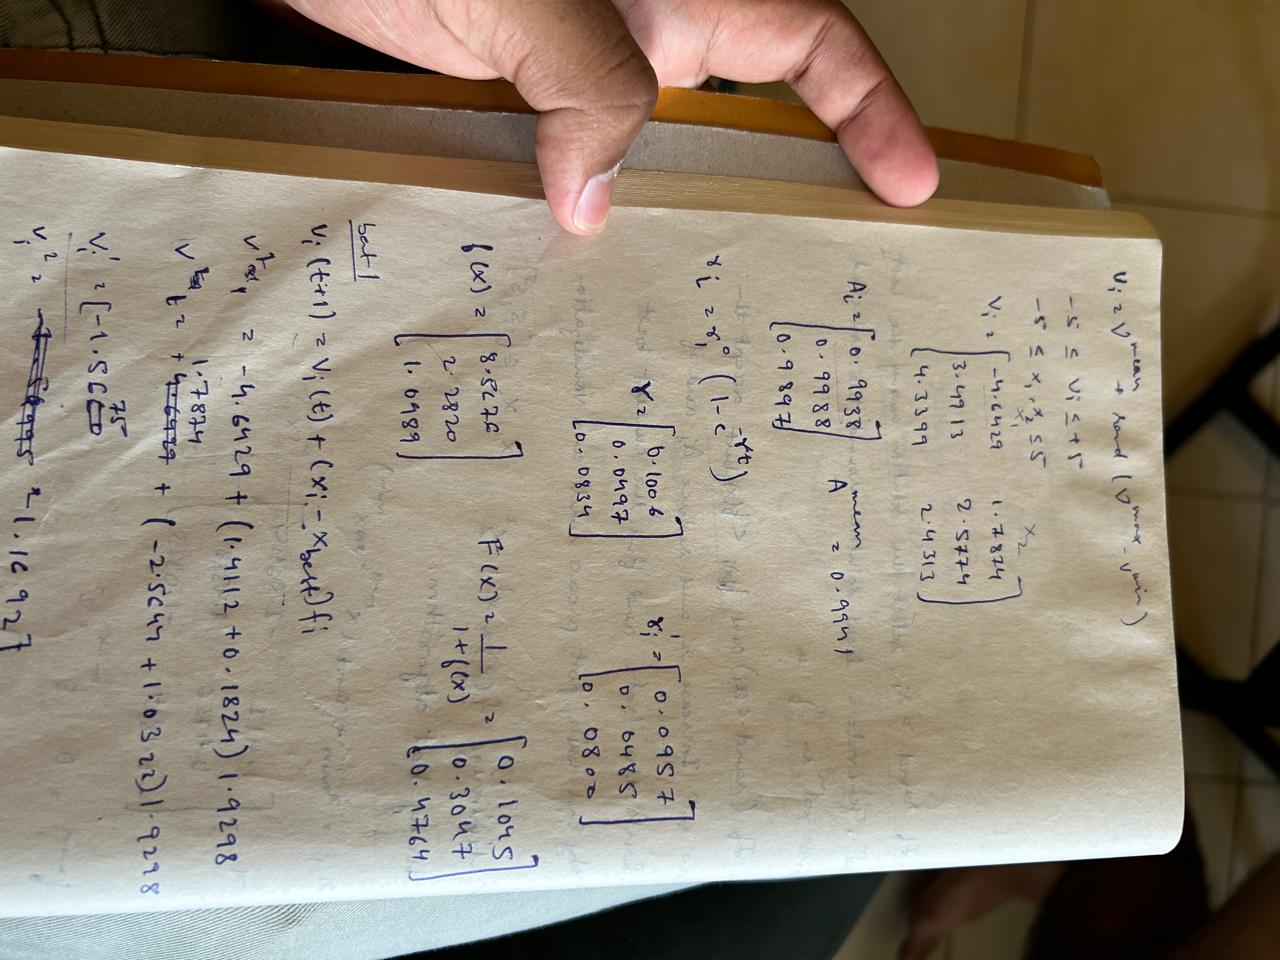 v_i = v^mean + rand (v^max - v^min)
-5 ≤ v_i ≤ +5
-5 ≤ x_1, x_2 ≤ 5
x_1 x_2
v_i = [ -4.6429 1.7874
3.4913 2.5774
4.3399 2.4313 ]
A_i = [ 0.9938
0.9988
0.9897 ] A^mean = 0.9941
r_i = r_i^0 (1 - e^-γt)
r = [ 0.1006
0.0497
0.0834 ] r_i' = [ 0.0957
0.0485
0.0800 ]
f(x) = [ 8.5676
2.2820
1.0989 ] F(x) = 1/(1+f(x)) = [ 0.1045
0.3047
0.4764 ]
bat 1
v_i (t+1) = v_i (t) + (x_i - x_best) f_i
= -4.6429 + (1.4112 + 0.1824) 1.9298
1.7874 + (-2.5647 + 1.0322) 1.9298
v_i^1 = [-1.5675
v_i^2 = -1.16927